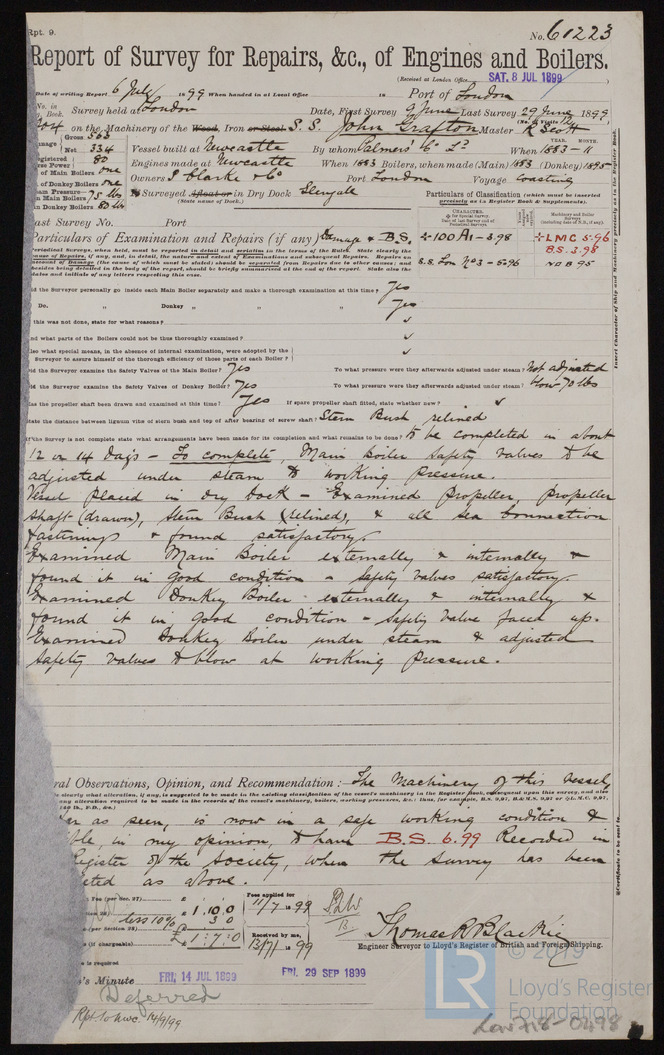 Rpt. 9.
No. 61223
Report of Survey for Repairs, &c., of Engines and Boilers.
(Received at London Office SAT. 8 JUL 1899)
Date of writing Report 6 July 1899 When handed in at Local Office 18 Port of London
No. in Book. Survey held at London Date, First Survey 9 June Last Survey 29 June 1899
on the Machinery of the Wood, Iron or Steel S.S. John Grafton Master R Scott
Gross 563
Net 334 Vessel built at Newcastle By whom Palmers' Co Ld When 1883-11
Registered Horse Power 80 Engines made at Newcastle When 1883 Boilers, when made (Main) 1883 (Donkey) 1895
of Main Boilers one Owners J Clarke & Co Port London Voyage Coasting
of Donkey Boilers one
in Main Boilers 75 lb Surveyed Afloat or in Dry Dock
in Donkey Boilers 80 lb (State name of Dock.)
Particulars of Classification (which must be inserted precisely as in Register Book & Supplements).
Last Survey No. Port
Particulars of Examination and Repairs (if any) Damage & B.S.
100 A1 - 3.98
S.S. Lon No 3 - 5.96
LMC 5.96
B.S. 3.98
ND B 95
Did the Surveyor personally go inside each Main Boiler separately and make a thorough examination at this time? Yes
Do. " Donkey " " " Yes
If this was not done, state for what reasons? ✓
And what parts of the Boilers could not be thoroughly examined? ✓
Also what special means, in the absence of internal examination, were adopted by the Surveyor to assure himself of the thorough efficiency of those parts of each Boiler? ✓
Did the Surveyor examine the Safety Valves of the Main Boiler? Yes To what pressure were they afterwards adjusted under steam? Not adjusted
Did the Surveyor examine the Safety Valves of Donkey Boiler? Yes To what pressure were they afterwards adjusted under steam? blow 70 lbs
Has the propeller shaft been drawn and examined at this time? Yes If spare propeller shaft fitted, state whether new? ✓
State the distance between lignum vitæ of stern bush and top of after bearing of screw shaft? Stern Bush relined
If the Survey is not complete state what arrangements have been made for its completion and what remains to be done? To be completed in about
12 or 14 days - To complete, Main boiler safety valves to be
adjusted under steam to working pressure.
Vessel placed in dry dock - Examined propeller, propeller
shaft (drawn), Stern Bush (relined), & all sea connection
fastenings & found satisfactory.
Examined Main Boiler externally & internally &
found it in good condition - Safety valves satisfactory.
Examined Donkey Boiler externally & internally &
found it in good condition - Safety valve faced up.
Examined Donkey Boiler under steam & adjusted
Safety valves to blow at working pressure.
General Observations, Opinion, and Recommendation:- The Machinery of this vessel,
far as seen, is now in a safe working condition &
in my opinion, to have B.S. 6.99 Recorded in
Register of the Society, when the survey has been
completed as above.
Fee (per Sec. 27) £ 1.10.0 Fees applied for 11/7 1899
less 10% 3 0
£ 1:7:0 Received by me, 99
Thomas R Blackie
Engineer Surveyor to Lloyd's Register of British and Foreign Shipping.
Minute FRI. 14 JUL 1899 FRI. 29 SEP 1899
Deferred
14/9/99
Certificate to be sent to
Insert Character of Ship and Machinery precisely as in the Register Book.
LR
© 2019
Lloyd's Register
Foundation